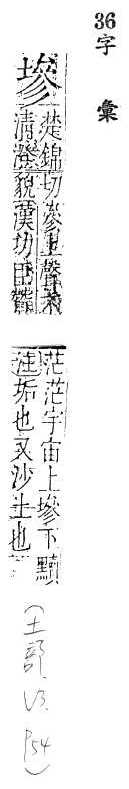 36
字彙
墋
楚錦切參上聲
清澄貌漢功臣贊
茫茫宇宙上墋下黷
注垢也又沙土也
(土部 V3. P54)